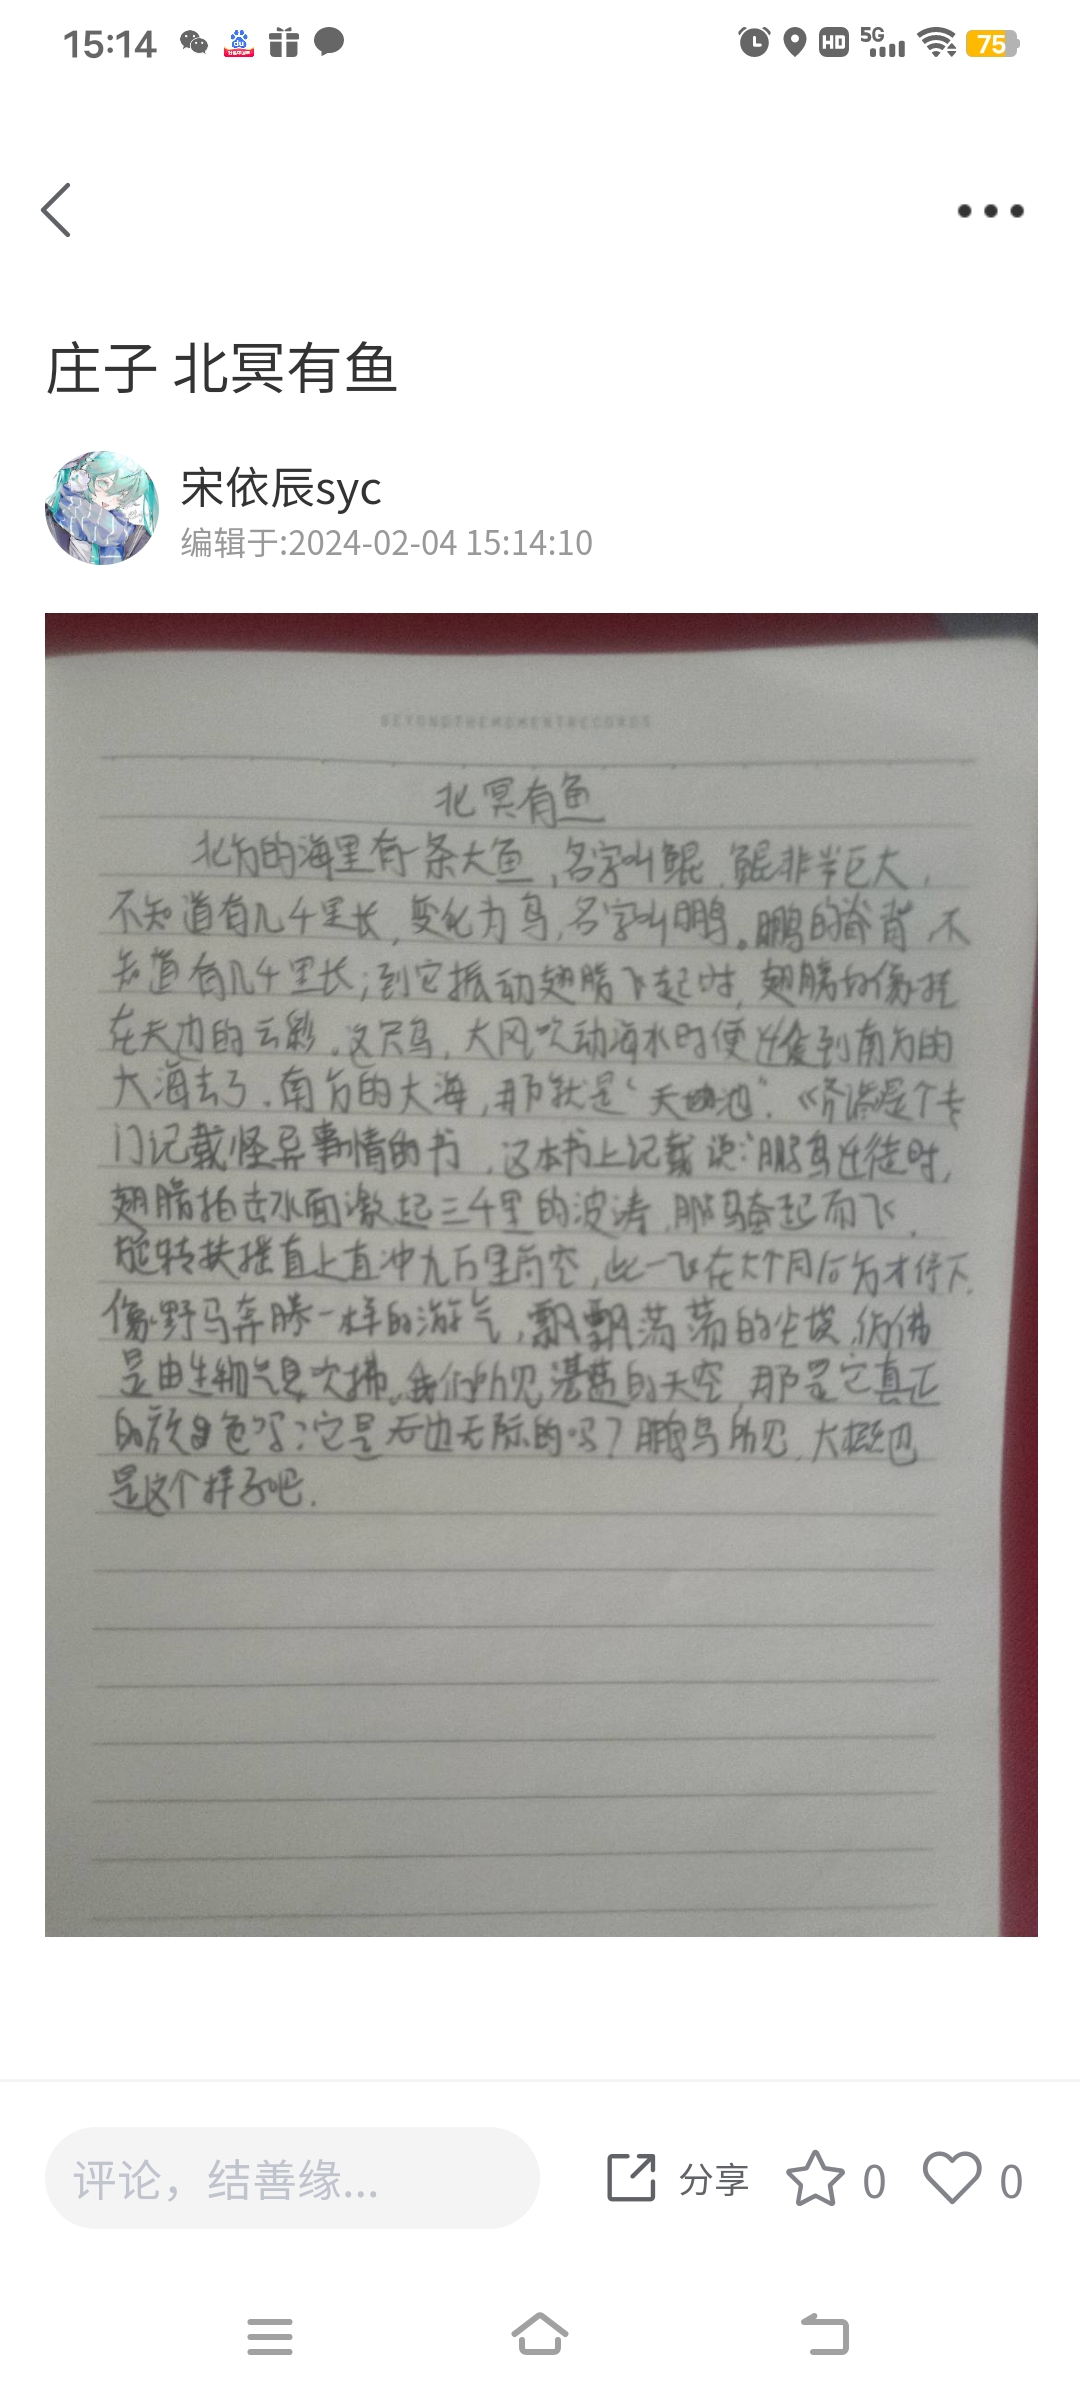 15:14
HD 5G 75
庄子 北冥有鱼
宋依辰syc
编辑于:2024-02-04 15:14:10
BEYONDTHEMOMENTRECORDS
北冥有鱼
北方的海里有一条大鱼,名字叫鲲.鲲非常巨大,
不知道有几千里长,变化为鸟,名字叫鹏。鹏的脊背,不
知道有几千里长;到它振动翅膀飞起时,翅膀就像挂
在天边的云彩.这只鸟,大风吹动海水时便迁徙到南方的
大海去了.南方的大海,那就是“天池”.《齐谐》是个专
门记载怪异事情的书,这本书上记载说:“鹏鸟迁徙时,
翅膀拍击水面激起三千里的波涛,鹏鸟奋起而飞,
旋转扶摇直上直冲九万里高空,此一飞在六个月后方才停下.
像野马奔腾一样的游气,飘飘荡荡的尘埃,仿佛
是由生物气息吹拂.我们所见湛蓝的天空,那是它真正
的颜色吗?它是无边无际的吗?鹏鸟所见,大概也
是这个样子吧.
评论，结善缘...
分享 0 0